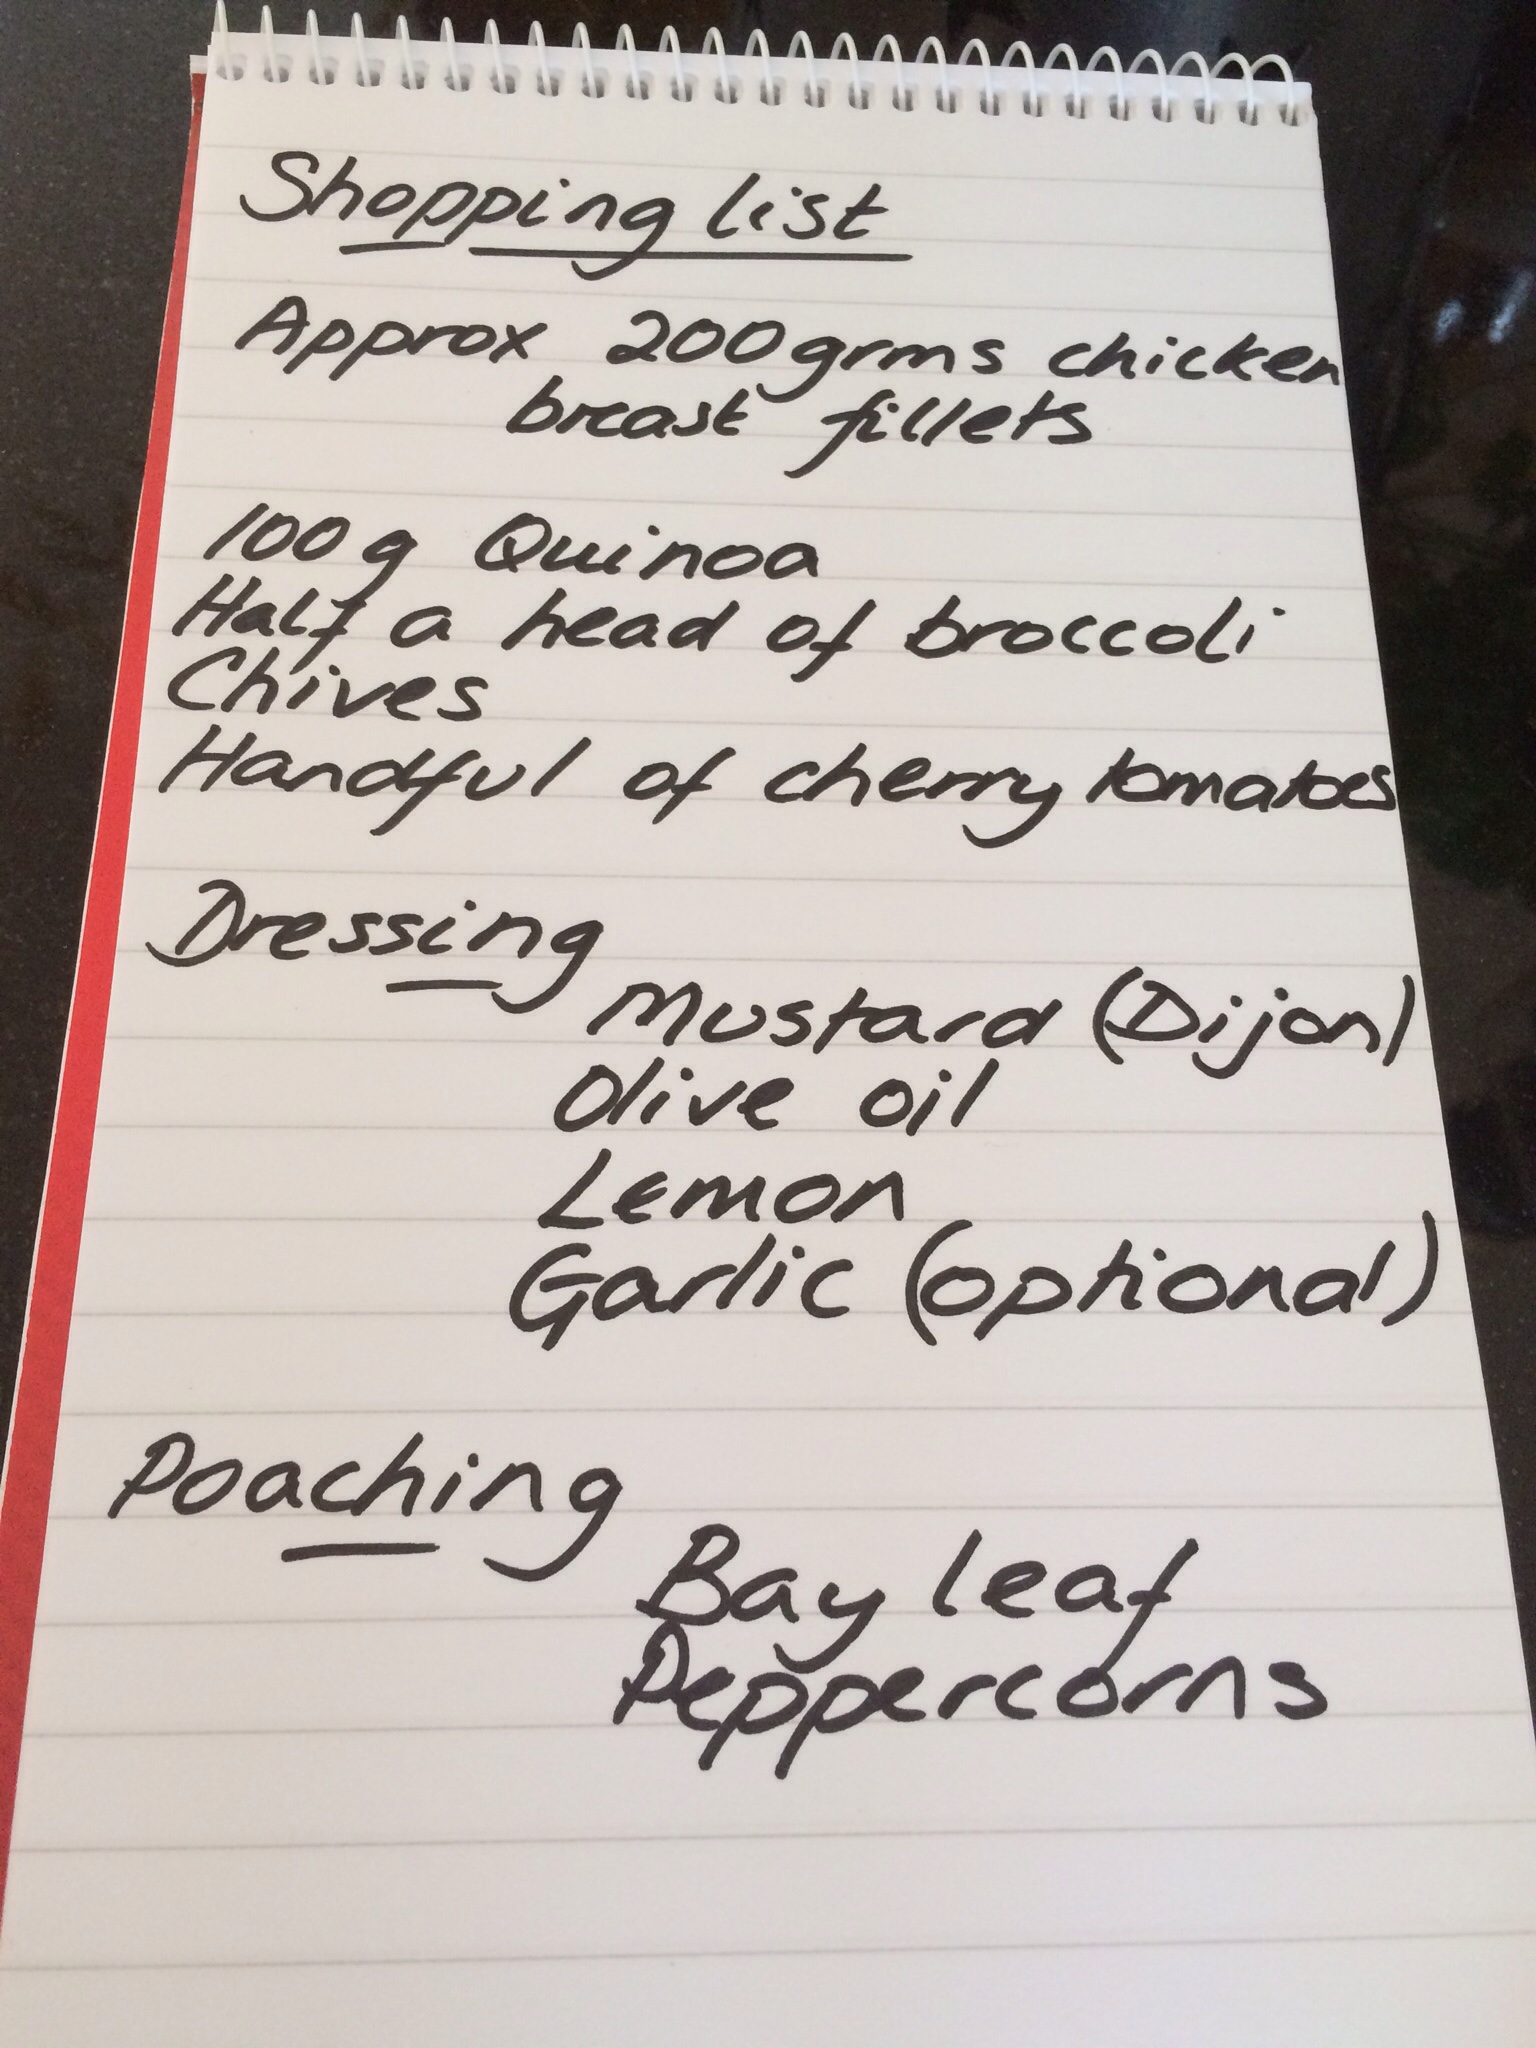 Shopping list
Approx 200grms chicken
breast fillets
100g Quinoa
Half a head of broccoli
Chives
Handful of cherry tomatoes
Dressing
Mustard (Dijon)
Olive oil
Lemon
Garlic (optional)
Poaching
Bay leaf
Peppercorns